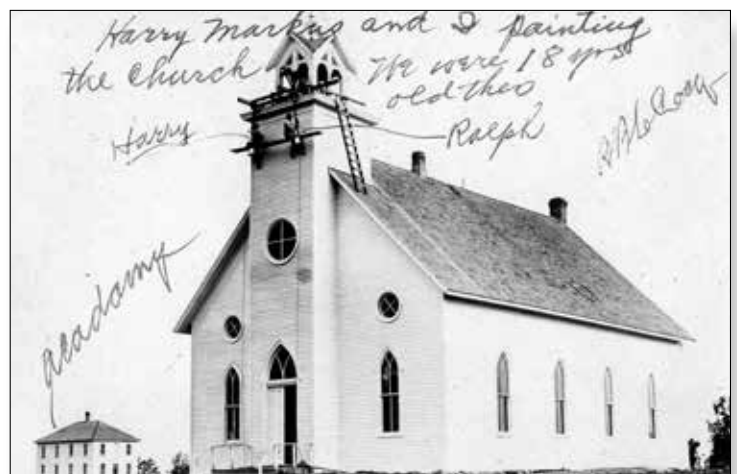 Harry Markus and I painting
the Church We were 18 yrs
old then
Harry
Ralph
acadamy